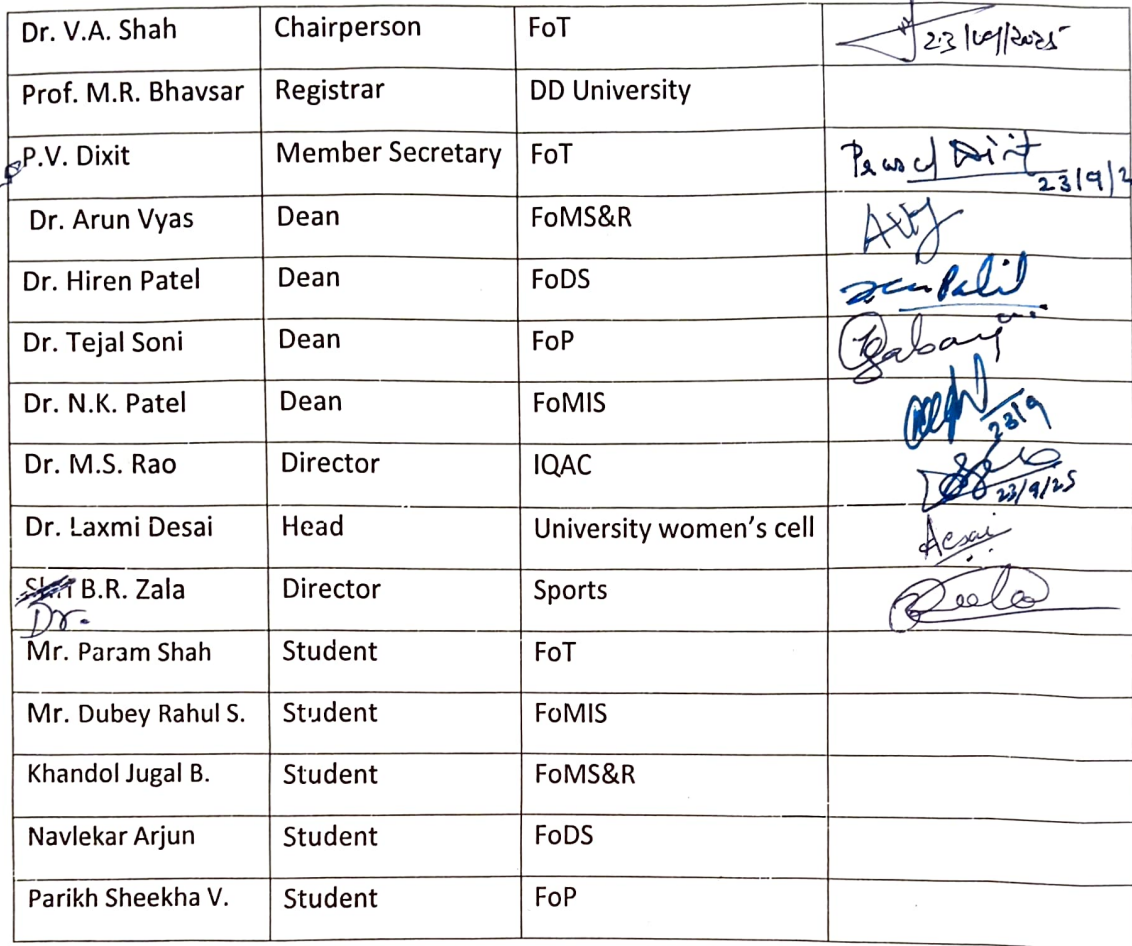 Dr. V.A. Shah Chairperson FoT 23/09/2025
Prof. M.R. Bhavsar Registrar DD University
P.V. Dixit Member Secretary FoT 23/9/2
Dr. Arun Vyas Dean FoMS&R
Dr. Hiren Patel Dean FoDS
Dr. Tejal Soni Dean FoP
Dr. N.K. Patel Dean FoMIS 23/9
Dr. M.S. Rao Director IQAC 23/9/25
Dr. Laxmi Desai Head University women's cell Desai
B.R. Zala Director Sports
Dr.
Mr. Param Shah Student FoT
Mr. Dubey Rahul S. Student FoMIS
Khandol Jugal B. Student FoMS&R
Navlekar Arjun Student FoDS
Parikh Sheekha V. Student FoP